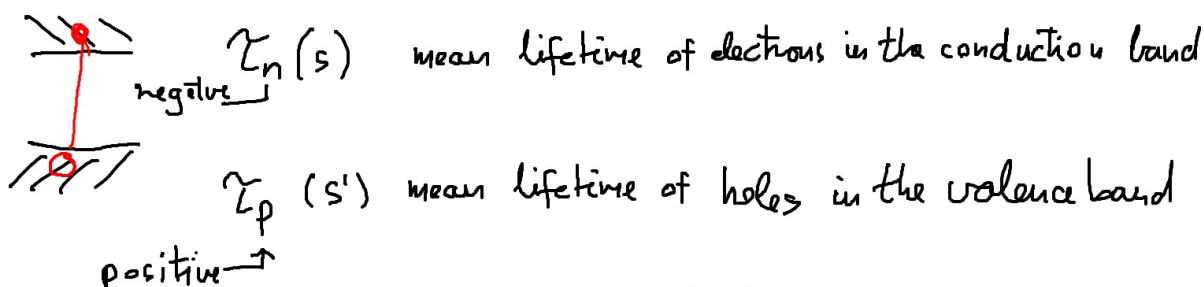 τn (s) mean lifetime of electrons in the conduction band
negative
τp (s) mean lifetime of holes in the valence band
positive